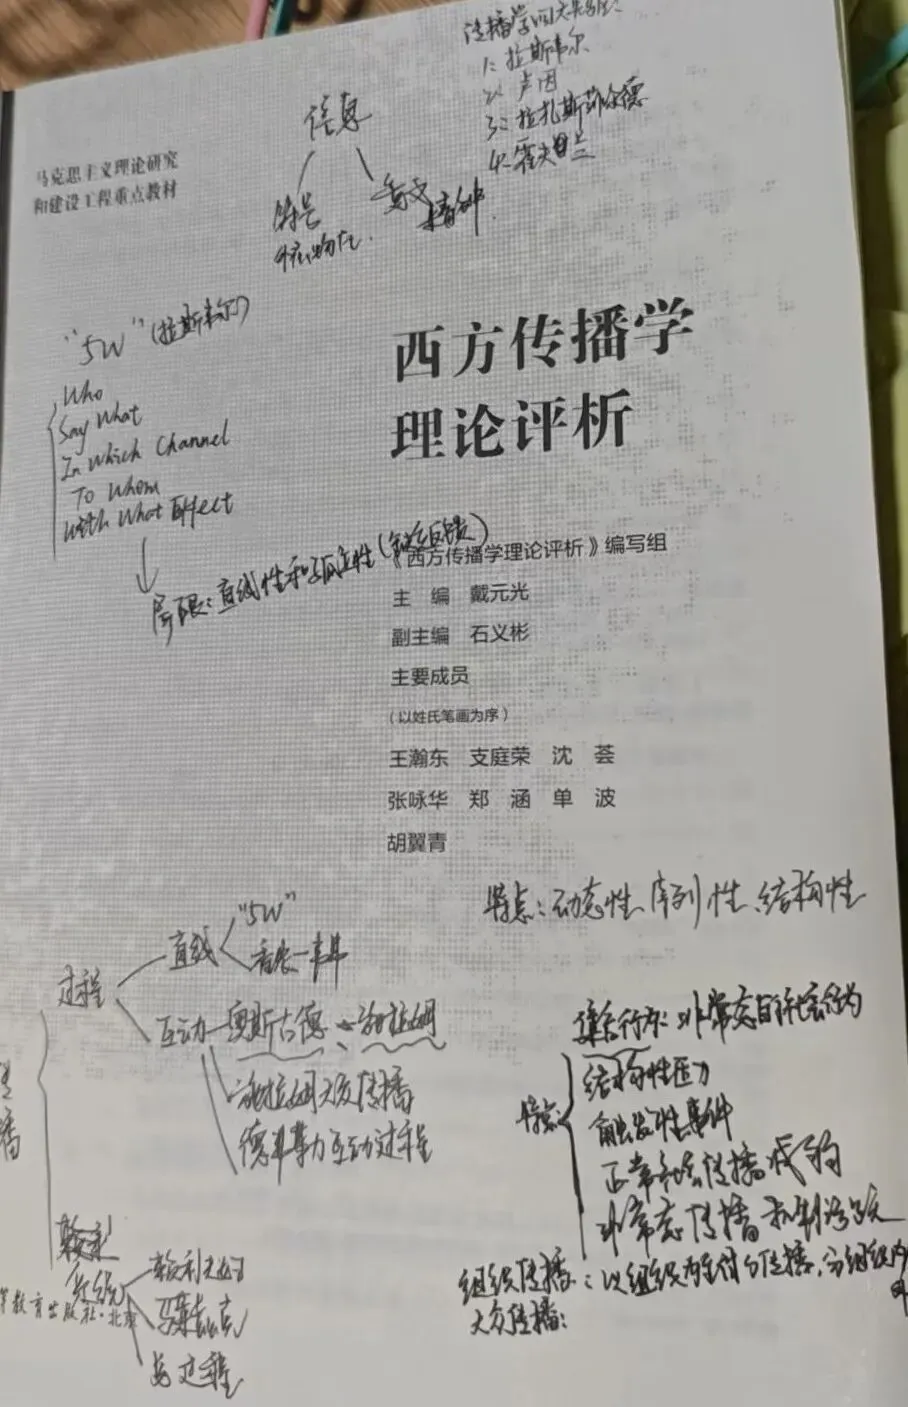 传播学四大先驱:
1: 拉斯韦尔
2: 卢因
3: 拉扎斯菲尔德
4: 霍夫兰
信息
符号
意义
精神
马克思主义理论研究
和建设工程重点教材
"5W"(拉斯韦尔)
Who
Say What
In Which Channel
To Whom
With What Effect
局限:直线性和
西方传播学
理论评析
《西方传播学理论评析》编写组
主 编 戴元光
副主编 石义彬
主要成员
(以姓氏笔画为序)
王瀚东 支庭荣 沈 荟
张咏华 郑 涵 单 波
胡翼青
特点:动态性、序列性、结构性
过程
直线
"5W"
香农—韦弗
互动—奥斯古德、施拉姆
施拉姆大众传播
德弗勒互动过程
系统
赖利夫妇
马莱兹克
集合行为:非常态
特点:
结构性压力
触发性事件
正常社会传播
非常态传播机制
组织传播:以组织为主体的传播,分组织内
大众传播:
等教育出版社·北京